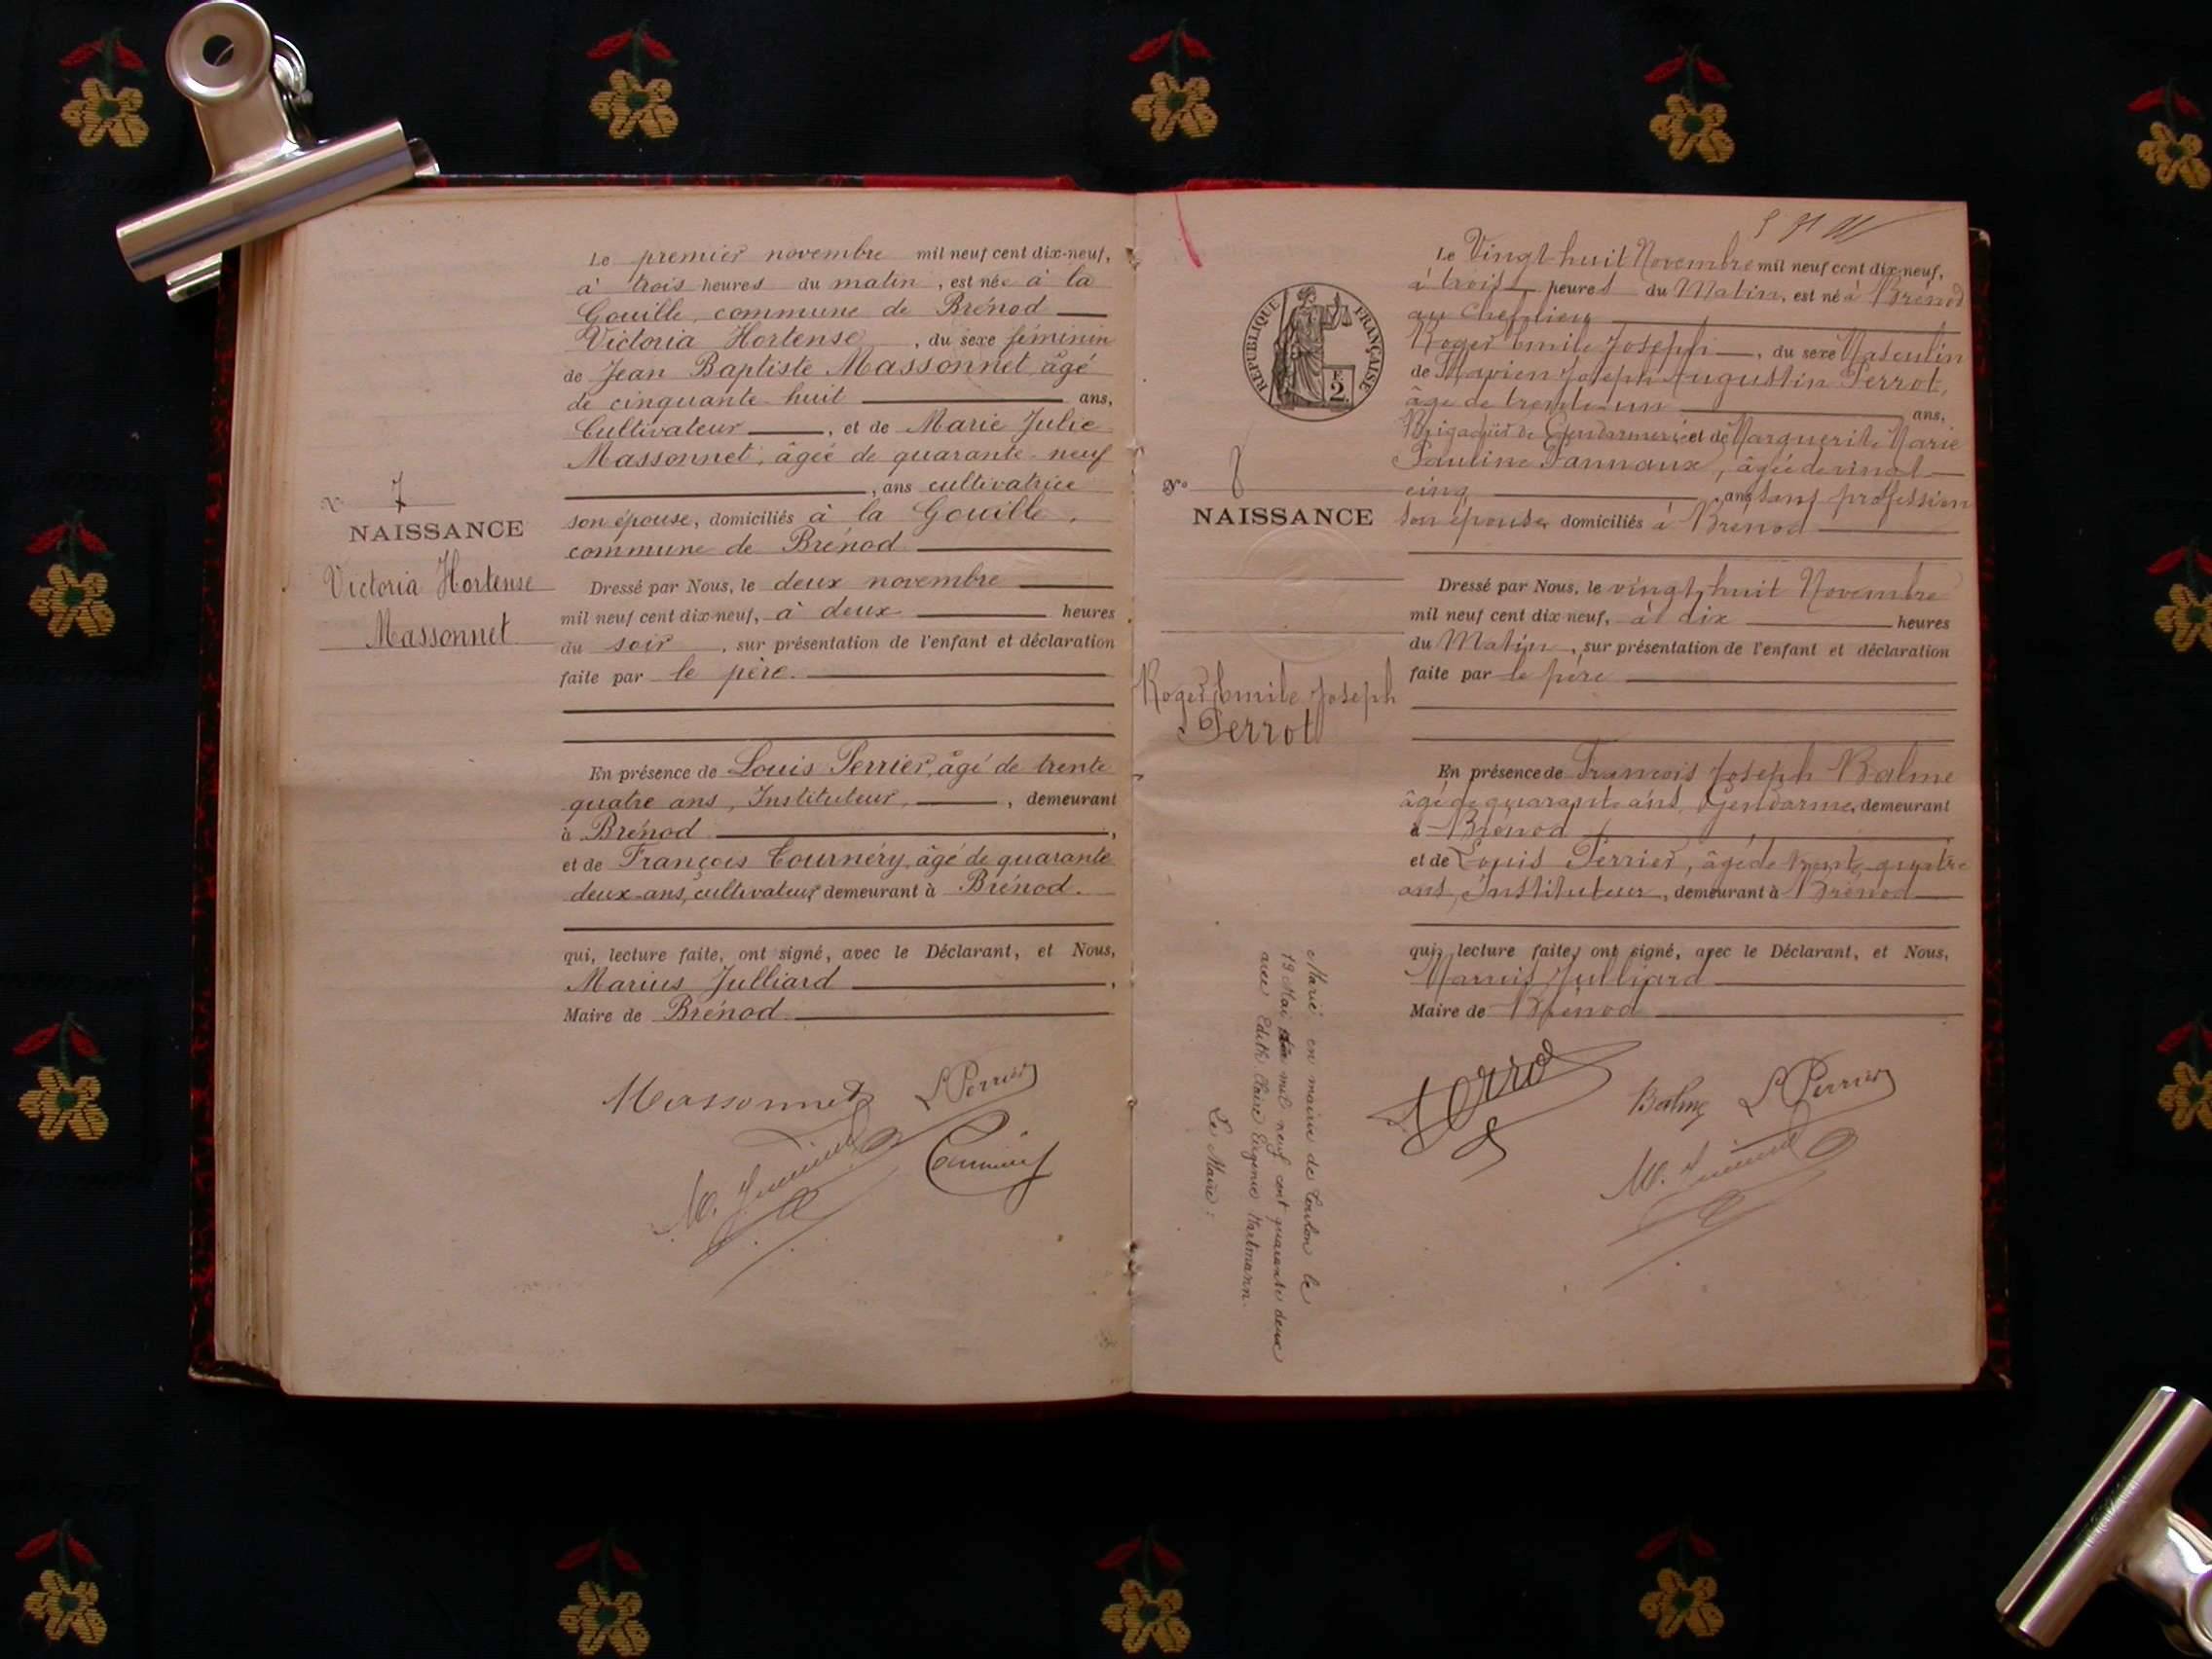 Le premier novembre mil neuf cent dix-neuf,
à trois heures du matin, est née à la
Gouille, commune de Brénod
Victoria Hortense, du sexe féminin
de Jean Baptiste Massonnet, âgé
de cinquante-huit ans,
Cultivateur, et de Marie Julie
Massonnet, âgée de quarante-neuf
, ans cultivatrice
son épouse, domiciliés à la Gouille,
commune de Brénod
N° 7
NAISSANCE
Victoria Hortense
Massonnet
Dressé par Nous, le deux novembre
mil neuf cent dix-neuf, à deux heures
du soir, sur présentation de l'enfant et déclaration
faite par le père.
En présence de Louis Perrier, âgé de trente
quatre ans, Instituteur, demeurant
à Brénod,
et de François Tournéry, âgé de quarante
deux ans, cultivateur demeurant à Brénod.
qui, lecture faite, ont signé, avec le Déclarant, et Nous,
Marius Julliard,
Maire de Brénod
Massonnet L Perrier
M. Julliard
Le Vingt-huit Novembre mil neuf cent dix-neuf,
à trois heures du Matin, est né à Brénod
au Chef-lieu
Roger Emile Joseph, du sexe Masculin
de Joseph Augustin Perrot,
âgé de trente-un ans,
Brigadier de Gendarmerie et de Marguerite Marie
Pauline Pannaux, âgée de vingt-
cinq ans sans profession
son épouse, domiciliés à Brénod
RÉPUBLIQUE FRANÇAISE
2
N° 8
NAISSANCE
Roger Emile Joseph
Perrot
Dressé par Nous, le vingt-huit Novembre
mil neuf cent dix-neuf, à dix heures
du Matin, sur présentation de l'enfant et déclaration
faite par le père
En présence de François Joseph Balme
âgé de quarante ans, Gendarme, demeurant
à Brénod
et de Louis Perrier, âgé de trente-quatre
ans, Instituteur, demeurant à Brénod
qui, lecture faite, ont signé, avec le Déclarant, et Nous,
Marius Julliard
Maire de Brénod
Perrot Balme L Perrier
M. Julliard
Marié en mairie de Toulon le
19 Mai mil neuf cent quarante deux
avec Edith Claire Eugenie Hartmann.
Le Maire :